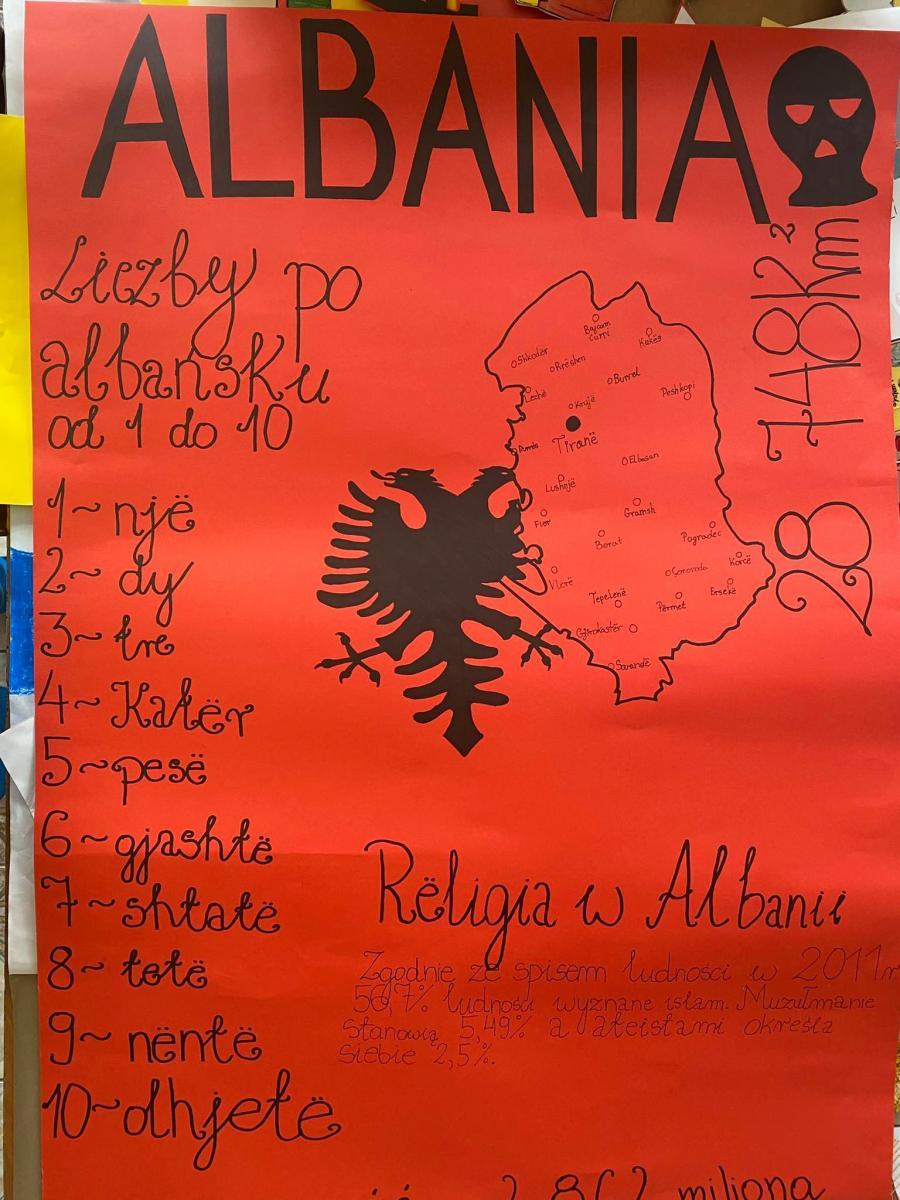 ALBANIA
28 748km²
Liczby po
albańsku
od 1 do 10
1~ një
2~ dy
3~ tre
4~ Katër
5~pesë
6~gjashtë
7~shtatë
8~ tetë
9~ nëntë
10~dhjetë
Bajram
Curri
Kukës
Shkodër
Rrëshen
Burrel
Peshkopi
Lezhë
Krujë
Tiranë
Durrës
Elbasan
Lushnjë
Gramsh
Fier
Berat
Pogradec
Korcë
Vlorë
Corovoda
Ersekë
Tepelenë
Përmet
Gjirokastër
Sarandë
Rëligia w Albanii
Zgodnie ze spisem ludności w 2011r
56,7% ludności wyznane islam. Muzułmanie
stanowią 5,49% a ateistami określa
siebie 2,5%.
miliona